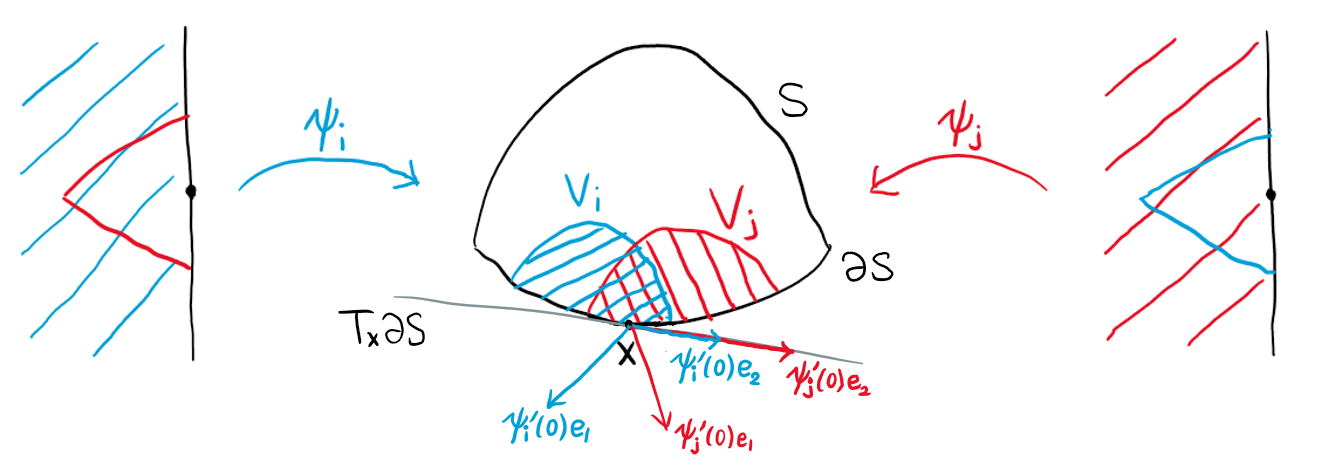 ψi
S
ψj
Vi
Vj
∂S
Tx∂S
x
ψi'(0)e2
ψj'(0)e2
ψi'(0)e1
ψj'(0)e1